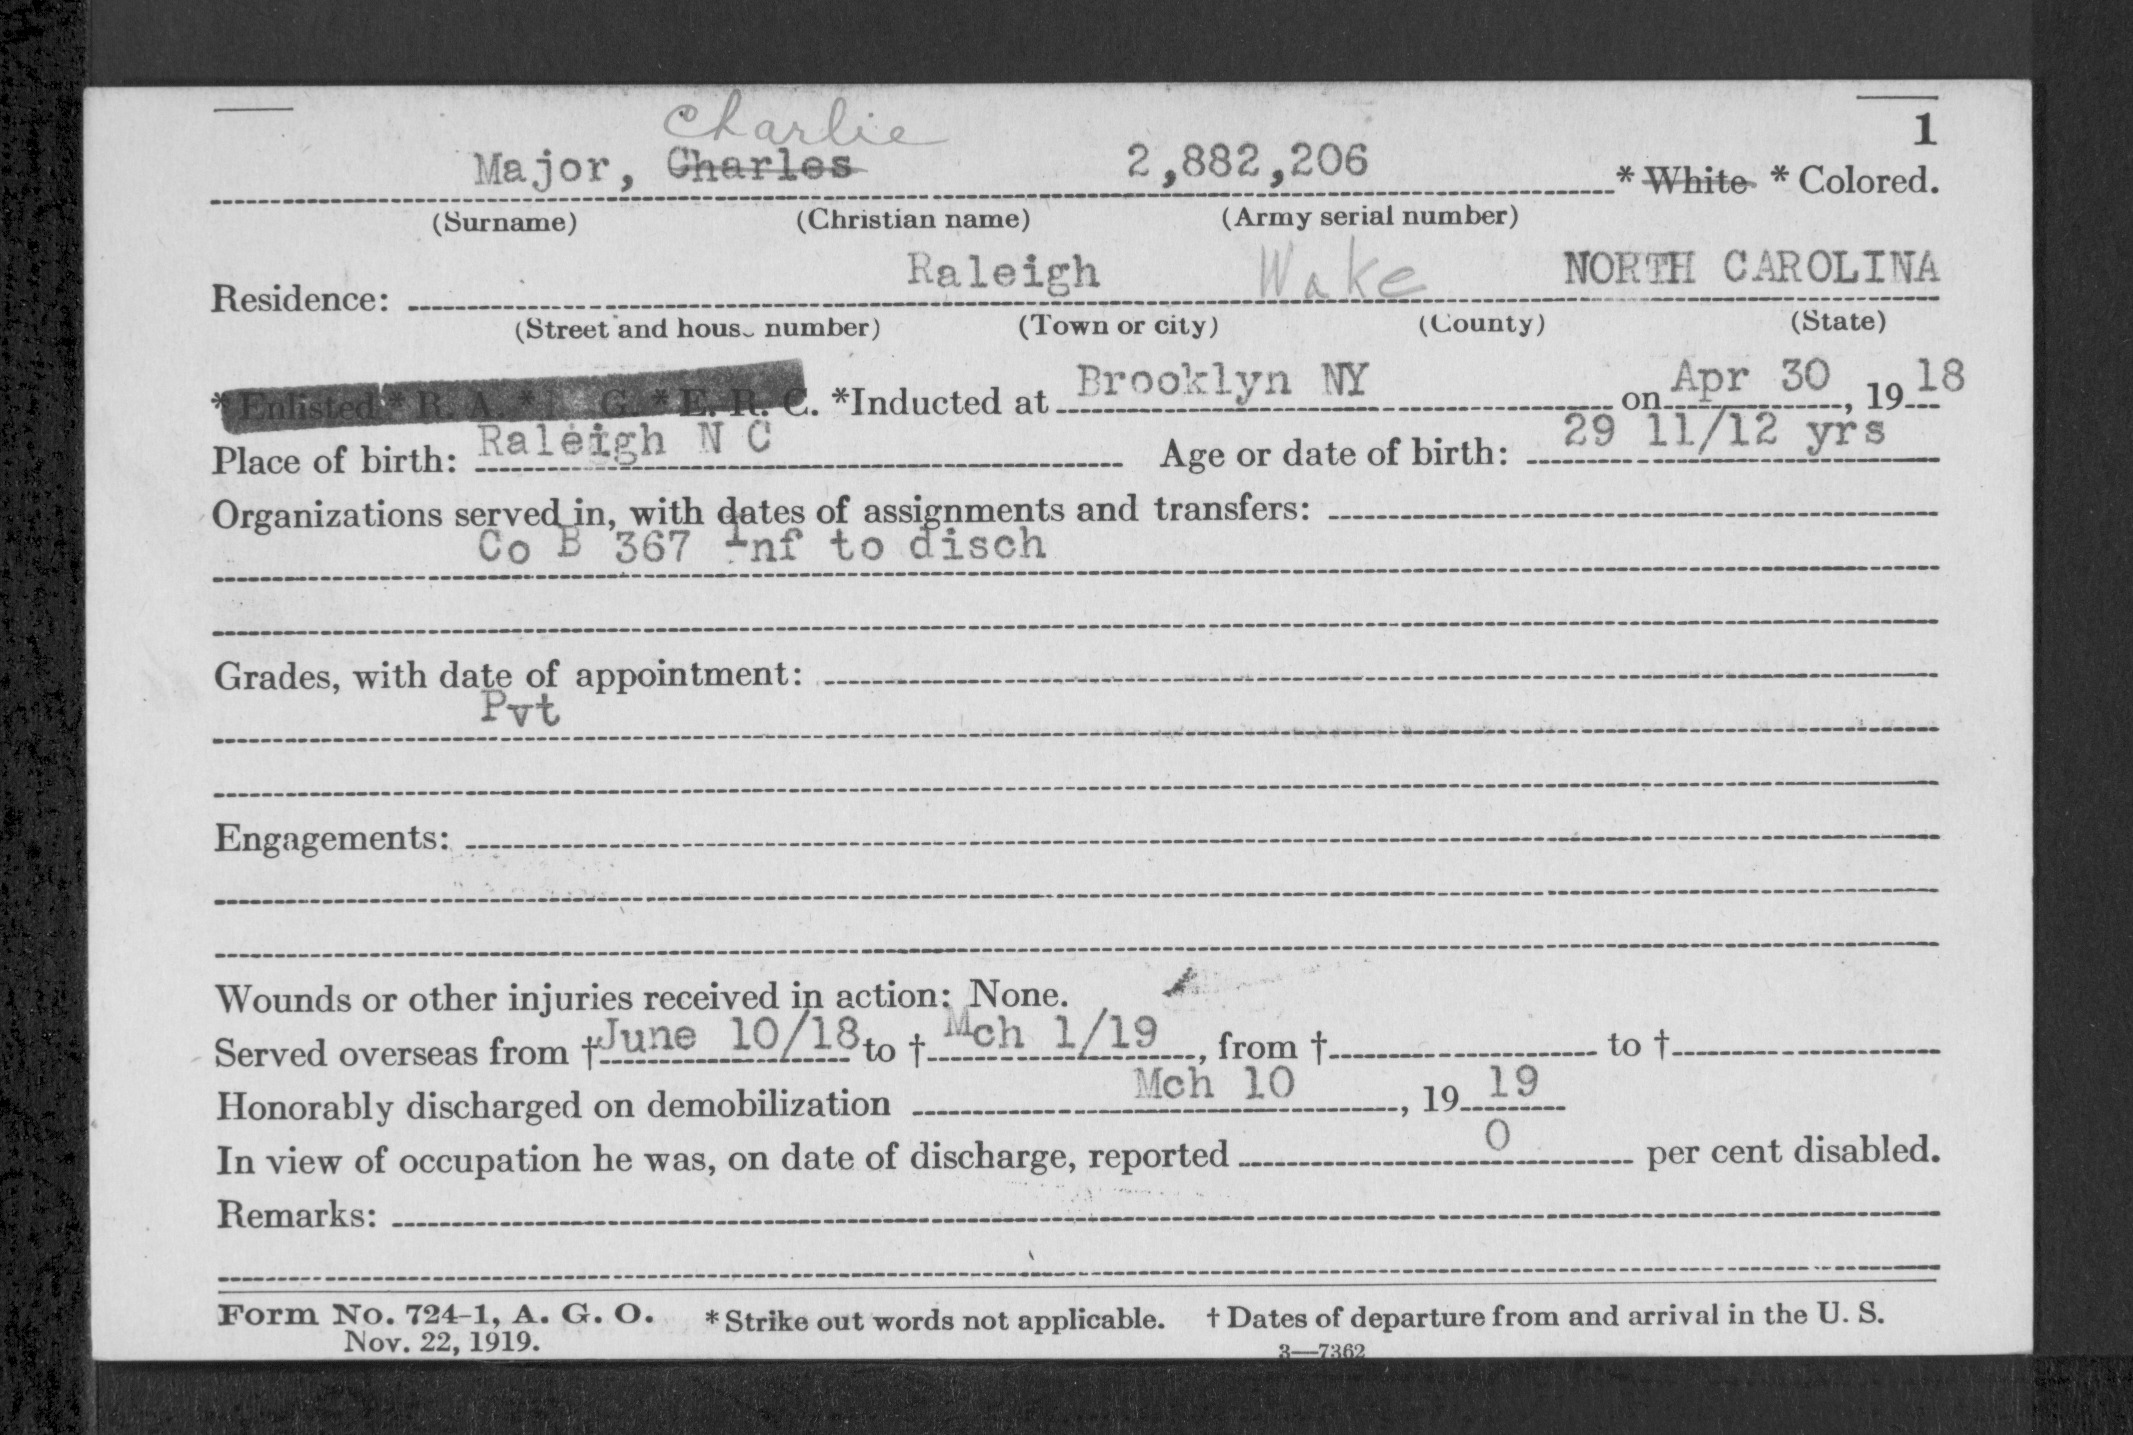 Charlie
1
Major, Charles 2,882,206 * White * Colored.
(Surname) (Christian name) (Army serial number)
Raleigh Wake NORTH CAROLINA
Residence:
(Street and house number) (Town or city) (County) (State)
* Enlisted * R. A. * G. * E. R. C. *Inducted at Brooklyn NY on Apr 30, 19 18
Place of birth: Raleigh N C Age or date of birth: 29 11/12 yrs
Organizations served in, with dates of assignments and transfers:
Co B 367 Inf to disch
Grades, with date of appointment:
Pvt
Engagements:
Wounds or other injuries received in action: None.
Served overseas from † June 10/18 to † Mch 1/19, from † to †
Honorably discharged on demobilization Mch 10, 19 19
In view of occupation he was, on date of discharge, reported 0 per cent disabled.
Remarks:
Form No. 724-1, A. G. O. * Strike out words not applicable. † Dates of departure from and arrival in the U. S.
Nov. 22, 1919. 3—7362